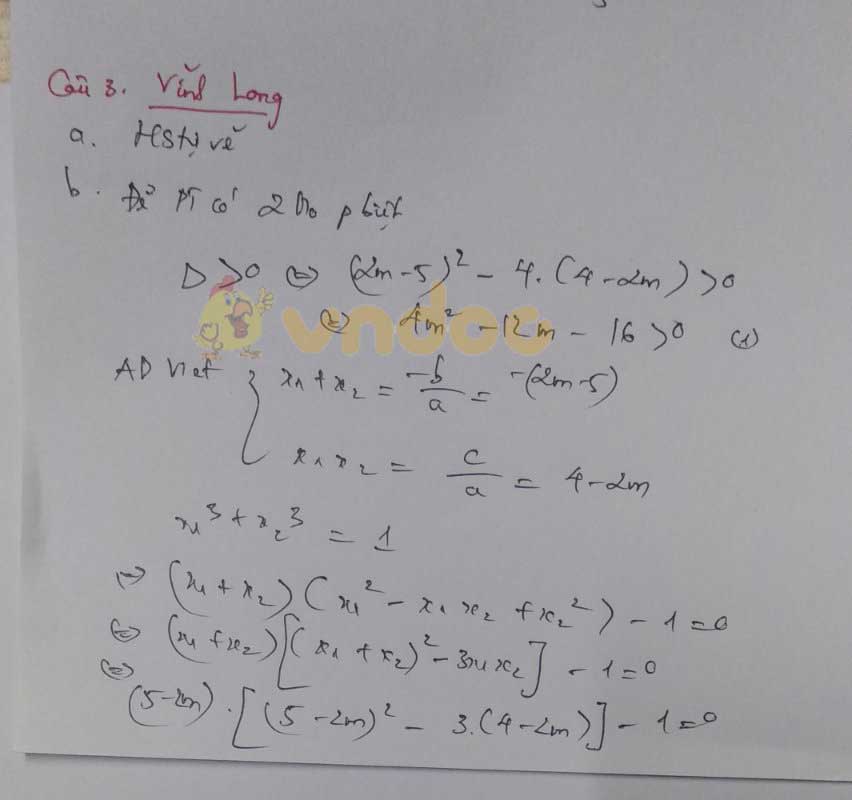 Câu 3. Vĩnh Long
a. HS tự vẽ
b. Để PT có 2 No pbiệt
Δ > 0 ⇔ (2m-5)² - 4.(4-2m) > 0
⇔ 4m² - 12m - 16 > 0 (1)
vndoc
AD Viet { x₁ + x₂ = -b/a = -(2m-5)
x₁ x₂ = c/a = 4-2m
x₁³ + x₂³ = 1
⇔ (x₁ + x₂)(x₁² - x₁x₂ + x₂²) - 1 = 0
⇔ (x₁ + x₂)[(x₁ + x₂)² - 3x₁x₂] - 1 = 0
⇔
(5-2m).[(5-2m)² - 3.(4-2m)] - 1 = 0